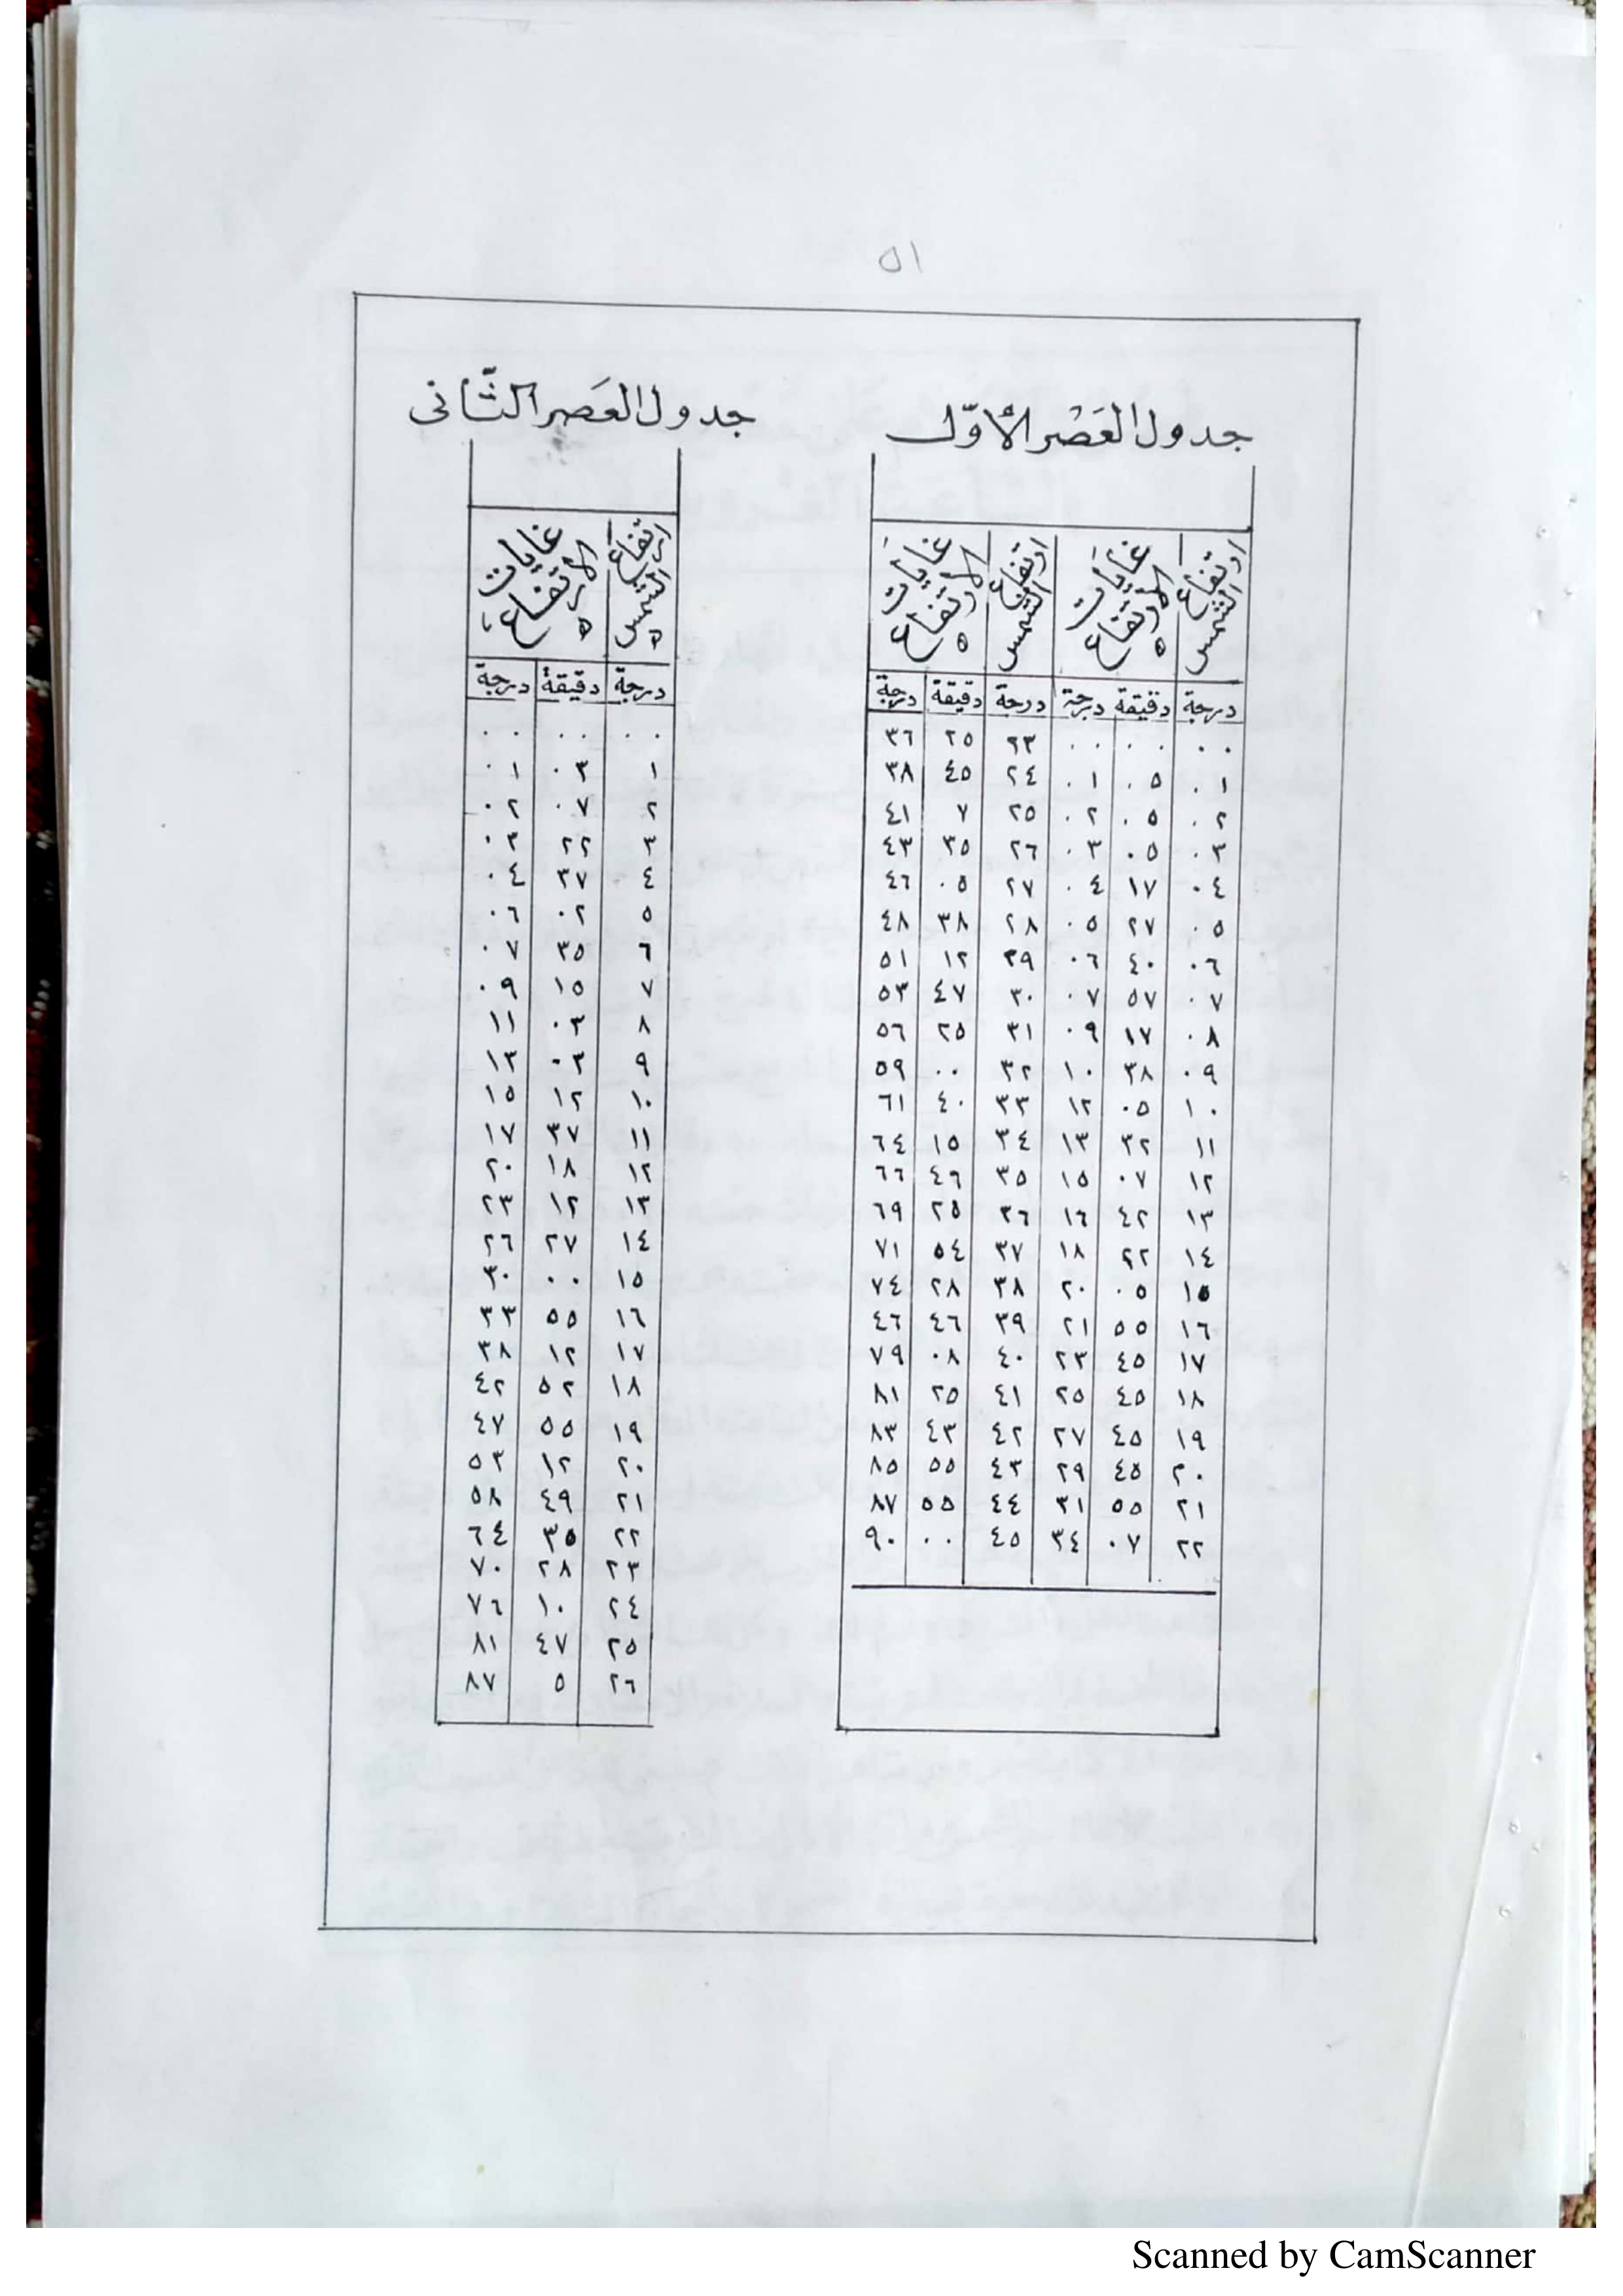 ٥١
جدول العَصْر الأوّل
ارتفاع الشمس غايات الارتفاع ارتفاع الشمس غايات الارتفاع
درجة دقيقة درجة درجة دقيقة درجة
٠٠ ٠٠ ٠٠ ٢٣ ٢٥ ٣٦
٠١ ٠٥ ٠١ ٢٤ ٤٥ ٣٨
٠٢ ٠٥ ٠٢ ٢٥ ٧ ٤١
٠٣ ٠٥ ٠٣ ٢٦ ٣٥ ٤٣
٠٤ ١٧ ٠٤ ٢٧ ٠٥ ٤٦
٠٥ ٢٧ ٠٥ ٢٨ ٣٨ ٤٨
٠٦ ٤٠ ٠٦ ٢٩ ١٢ ٥١
٠٧ ٥٧ ٠٧ ٣٠ ٤٧ ٥٣
٠٨ ١٧ ٠٩ ٣١ ٢٥ ٥٦
٠٩ ٣٨ ١٠ ٣٢ ٠٠ ٥٩
١٠ ٠٥ ١٢ ٣٣ ٤٠ ٦١
١١ ٣٢ ١٣ ٣٤ ١٥ ٦٤
١٢ ٠٧ ١٥ ٣٥ ٤٩ ٦٦
١٣ ٤٢ ١٦ ٣٦ ٢٥ ٦٩
١٤ ٢٢ ١٨ ٣٧ ٥٤ ٧١
١٥ ٠٥ ٢٠ ٣٨ ٢٨ ٧٤
١٦ ٥٥ ٢١ ٣٩ ٤٦ ٤٦
١٧ ٤٥ ٢٣ ٤٠ ٠٨ ٧٩
١٨ ٤٥ ٢٥ ٤١ ٢٥ ٨١
١٩ ٤٥ ٢٧ ٤٢ ٤٣ ٨٣
٢٠ ٤٥ ٢٩ ٤٣ ٥٥ ٨٥
٢١ ٥٥ ٣١ ٤٤ ٥٥ ٨٧
٢٢ ٠٧ ٣٤ ٤٥ ٠٠ ٩٠
جدول العَصر الثّانى
ارتفاع الشمس غايات الارتفاع
درجة دقيقة درجة
٠٠ ٠٠ ٠٠
١ ٠٣ ٠١
٢ ٠٧ ٠٢
٣ ٢٢ ٠٣
٤ ٣٧ ٠٤
٥ ٠٢ ٠٦
٦ ٣٥ ٠٧
٧ ١٥ ٠٩
٨ ٠٣ ١١
٩ ٠٣ ١٣
١٠ ١٢ ١٥
١١ ٣٧ ١٧
١٢ ١٨ ٢٠
١٣ ١٢ ٢٣
١٤ ٢٧ ٢٦
١٥ ٠٠ ٣٠
١٦ ٥٥ ٣٣
١٧ ١٢ ٣٨
١٨ ٥٢ ٤٢
١٩ ٥٥ ٤٧
٢٠ ١٢ ٥٣
٢١ ٤٩ ٥٨
٢٢ ٣٥ ٦٤
٢٣ ٢٨ ٧٠
٢٤ ١٠ ٧٦
٢٥ ٤٧ ٨١
٢٦ ٥ ٨٧
Scanned by CamScanner